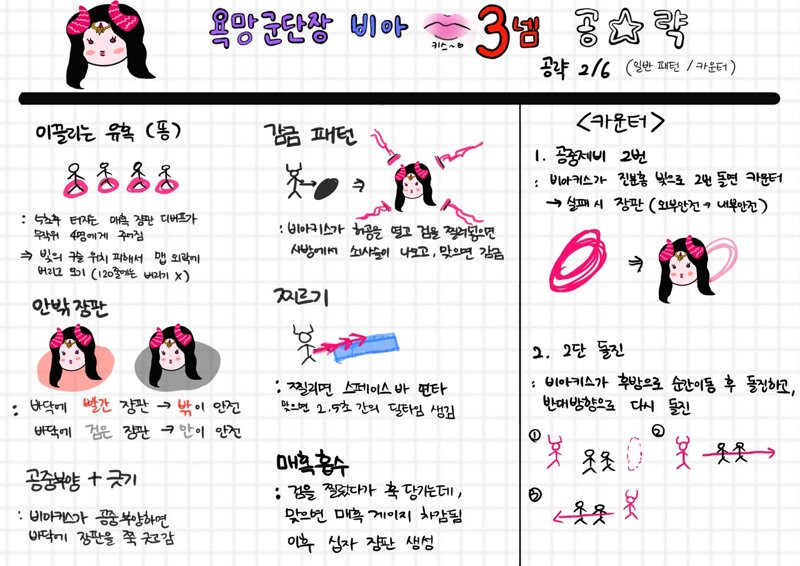 욕망군단장 비아
키스~♡
3넴 공☆략
공략 2/6 (일반 패턴 / 카운터)
이끌리는 유혹 (똥)
: 5초후 터지는 매혹 장판 디버프가
무작위 4명에게 주어짐
⇒ 빛의 구슬 위치 피해서 맵 외곽에
버리고 오기 (120줄에는 버리기 X)
안밖장판
: 바닥에 빨간 장판 → 밖이 안전
바닥에 검은 장판 → 안이 안전
공중부양 + 긋기
: 비아키스가 공중부양하면
바닥에 장판을 쭉 긋고감
감금 패턴
: 비아키스가 허공을 열고 검을 찔러넣으면
사방에서 쇠사슬이 나오고, 맞으면 감금
찌르기
: 찔리면 스페이스바 연타
맞으면 2.5초 간의 딜타임 생김
매혹흡수
: 검을 찔렀다가 훅 당기는데,
맞으면 매혹 게이지 차감됨
이후 십자 장판 생성
<카운터>
1. 공중제비 2번
: 비아키스가 진분홍 빛으로 2번 돌면 카운터
→ 실패 시 장판 (외부안전 → 내부안전)
2. 2단 돌진
: 비아키스가 후방으로 순간이동 후 돌진하고,
반대방향으로 다시 돌진
① ②
③